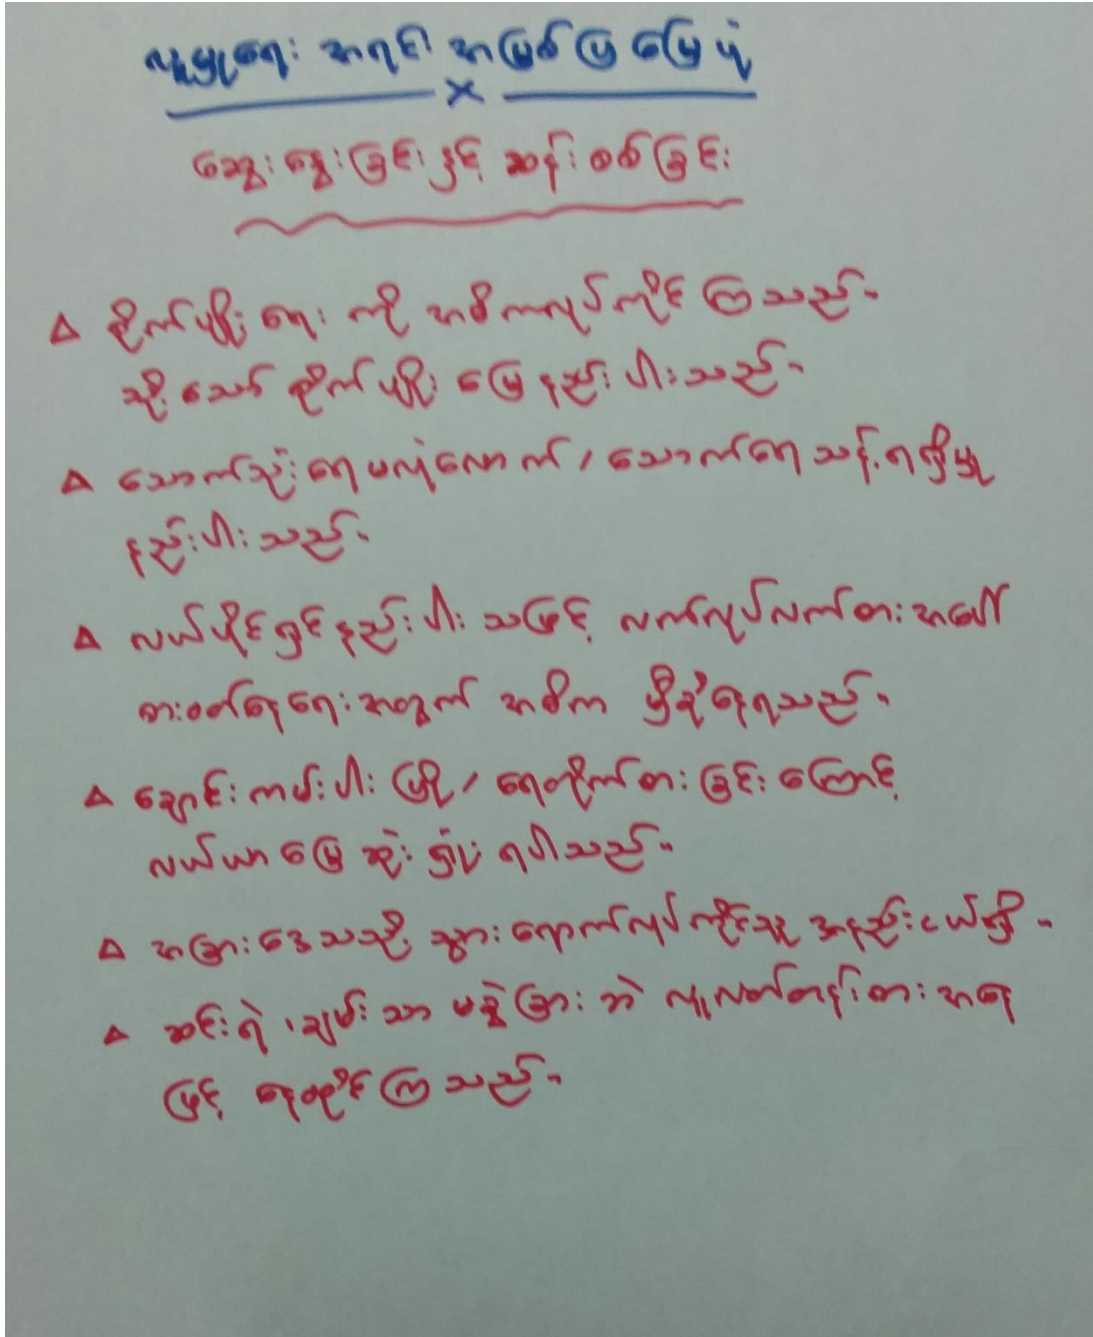 လူမှုရေး အရင်း အမြစ်ပြ မြေပုံ
×
ဆွေးနွေးခြင်းနှင့် ဆန်းစစ်ခြင်း
△ စိုက်ပျိုးရေး ကို အဓိကလုပ်ကိုင်ကြသည်။
သို့သော် စိုက်ပျိုးမြေနည်းပါးသည်။
△ သောက်သုံးရေမလုံလောက်၊ သောက်ရေသန့်ရရှိမှု
နည်းပါးသည်။
△ လယ်ပိုင်ရှင်နည်းပါးသဖြင့် လက်လုပ်လက်စားအပေါ်
စားဝတ်နေရေးအတွက် အဓိက မှီခိုနေရသည်။
△ ချောင်းကမ်းပါးပြို၊ ရေတိုက်စားခြင်းကြောင့်
လယ်ယာမြေဆုံးရှုံးရပါသည်။
△ အခြားဒေသသို့ သွားရောက်လုပ်ကိုင်သူ အနည်းငယ်ရှိ။
△ ဆင်းရဲ၊ ချမ်းသာ မခွဲခြားဘဲ လူလတ်တန်းစားအနေ
ဖြင့် နေထိုင်ကြသည်။